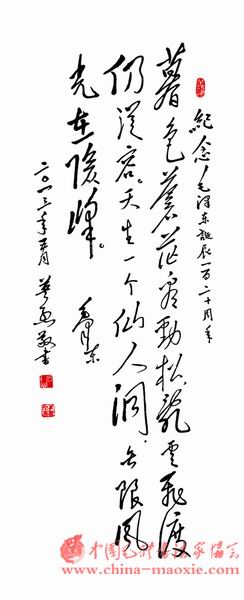 纪念毛泽东诞辰一百二十周年
暮色蒼茫看劲松，乱云飞渡
仍從容。天生一个仙人洞，无限风
光在险峰。
毛泽东
二〇一三年五月
www.china-maoxie.com